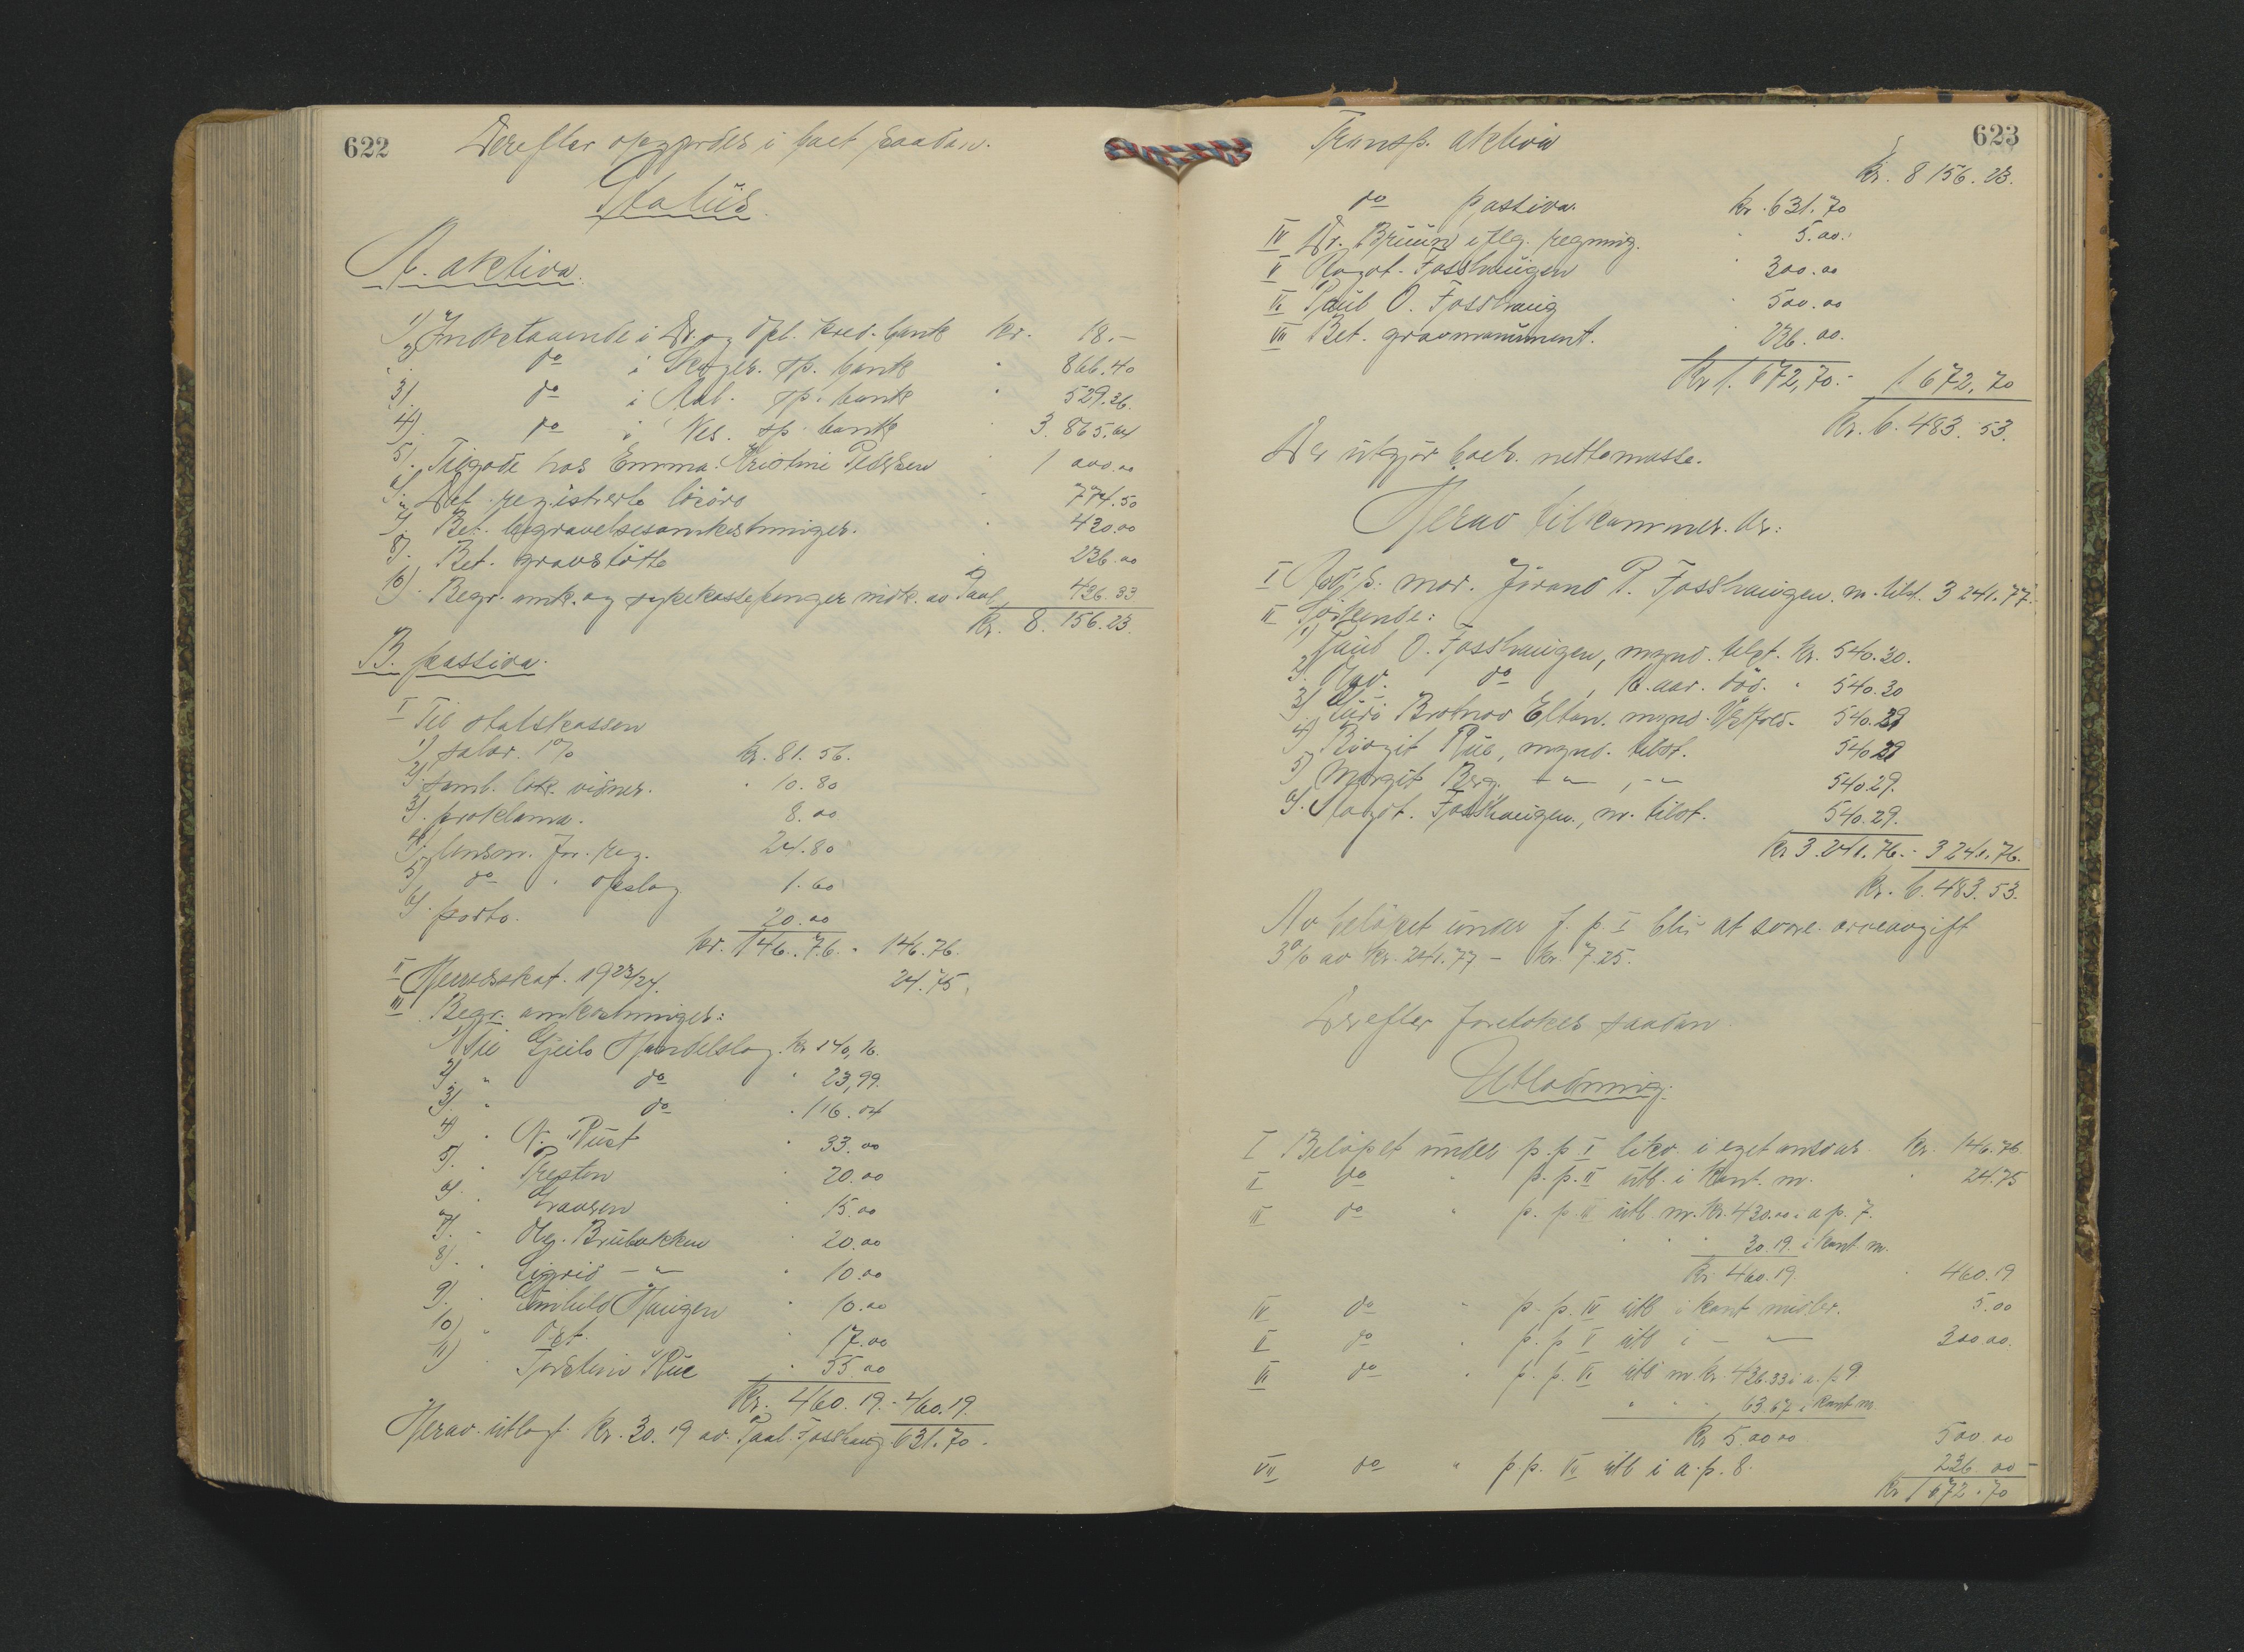 622
Derefter opgjordes i boet saadan.
Status
A. aktiva.
1) Indestaaende i Dr. og Opl. kred. bank kr. 18.-
2) do i Skoger. sp. bank " 866.40
3) do i Aal. sp. bank " 529.26.
4) do i Nes. sp. bank 3.865.04
5). Tilgode hos Emma Kristine Pedersen 1 000.00
6). Det registrerte lösöre 774.50
7. Bet. begravelsesomkostninger. 430.00
8). Bet. gravstötte 236.00
10) Begr. omk. og sykekassepenger indk. av Paal 436.33
Kr. 8.156.23.
B. passiva.
I Til statskassen
1) salær. 1% kr. 81.56.
2) samb. lok. vidner. " 10.80
3). proklama. 8.00
4). lensm. for. reg. 24.80
5) do " opslag 1.60
6). porto. 20.00
kr. 146.76. - 146.76.
II Herredsskat. 1923/24. 24.75.
III Begr. omkostninger:
1) Til Gjeilo Handelslag. kr. 140,16.
2). " do " 23,99.
3). " do " 116.04
4) " N. Rust " 33.00
5). " Presten " 20.00
6). " Graveren " 15.00
7). " Olog. Brubakken " 20.00
8). " Sigrid - " - " 10.00
9). " Gunhild Haugen " 10.00
10) " Ost. " 17.00
11) " Torstein Rue " 55.00
Kr. 460.19. - 460.19.
Herav utlagt kr. 30.19 av Paal Fosshaug 631.70.
623
Transp. aktiva
Kr. 8 156.23.
do passiva. kr. 631.70
IV Dr. Bruun iflg. regning. " 5.00.
V Ragnh. Fosshaugen " 300.00
VI Paul O. Fosshaug " 500.00
VII Bet. gravmonument. " 236.00.
Kr 1.672,70.- 1.672,70
Kr. 6.483.53.
Der utgjör boets nettomasse.
Herav tilkommer. dr:
I Avd's: mor. Jörand P. Fosshaugen. m. tilst. 3 241.77.
II Söskende:
1) Paul O. Fosshaugen, mynd. tilst. kr. 540.30.
2). Olav. do , 16. aar. död. " 540.30
3) Guri Brotnov Elton. mynd. Vestfold - 540.29
4) Birgit Rue, mynd. tilst. 540.29
5) Margit Berg. - " - , - " - 540.29.
6). Ragnh. Fosshaugen., m. tilst. 540.29.
kr 3.241.76. - 3 241.76.
Kr. 6.483.53.
Av belöpet under f. p. I blir at svare arveavgift
3% av kr. 241.77 - kr. 7.25.
Derefter foretokes saadan
Utlodning.
I Belöpet under p. p I likv. i eget ansvar. kr. 146.76
II do " p. p. II utl. i kont. m. " 24.75
III do " p. p. III utl. m. kr. 430.00 i a p. 7.
" " " 30.19. i kont m.
Kr 460.19 " 460.19
IV do " p. p. IV utl i kont midler. 5.00
V do " p. p V utl i - " - 300.00.
VI do " p. p. VI utl m. kr. 436.33 i a. p 9
" " " 63.67 i kont m
Kr 500.00 500.00
VII do " p.p. VII utl i a. p. 8. 236.00
Kr 1 672.70